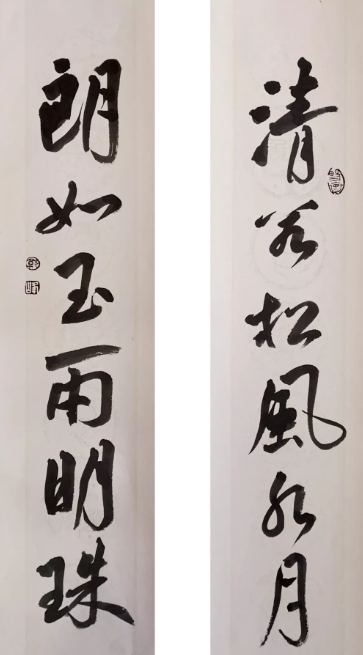 清若松風水月
朗如玉雨明珠